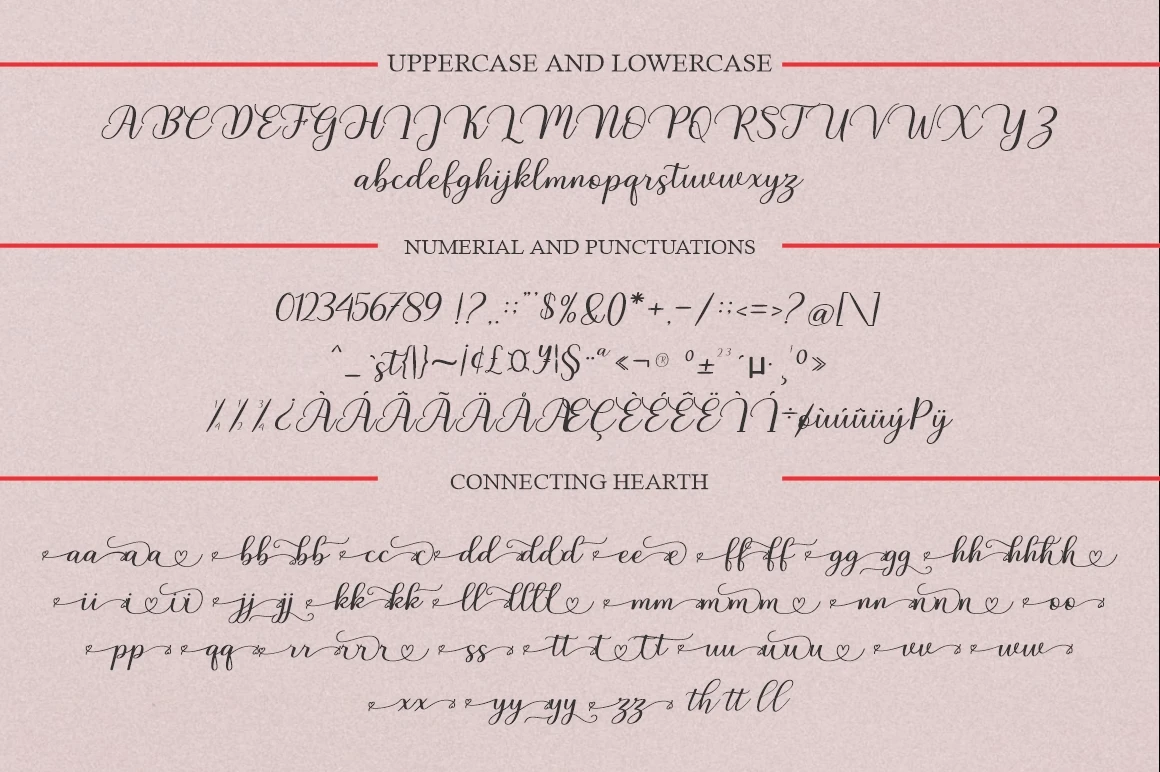 UPPERCASE AND LOWERCASE
ABCDEFGHIJKLMNOPQRSTUVWXYZ
abcdefghijklmnopqrstuvwxyz
NUMERIAL AND PUNCTUATIONS
0123456789 !?.,:;"'$%&()*+,-/:;<=>?@[\]
^_`st{|}~¡¢£¤¥¦§¨ª«¬®º±²³´µ·¸¹º»
¼½¾¿ÀÁÂÃÄÅÆÇÈÉÊËÌÍ÷øùúûüýÞÿ
CONNECTING HEARTH
aa aa a ♡ bb bb cc c dd ddd ee e ff ff gg gg hh hhh h ♡
ii i ♡ ii jj jj kk kk ll lltl ♡ mm mm m ♡ nn nn n ♡ oo
pp qq rr rr r ♡ ss tt t ♡ tt uu uu u ♡ vv ww
xx yy yy zz th tt ll